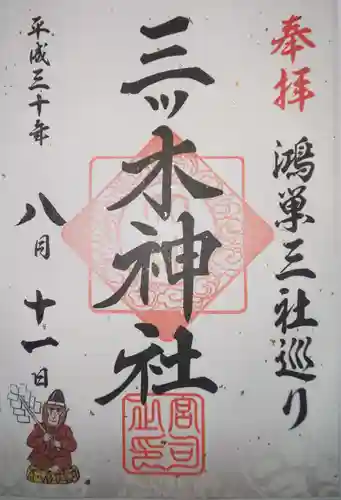 奉拝
鴻巣三社巡り
三ツ木神社
宮司之印
平成三十年
八月十一日